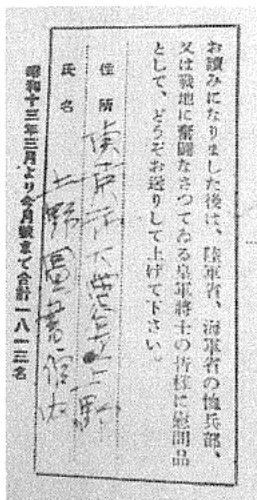 お讀みになりました後は、陸軍省、海軍省の恤兵部、
又は戰地に奮闘なさつてゐる皇軍將士の皆樣に慰問品
として、どうぞお送りして上げて下さい。
住所
氏名 上野圖書館内
昭和十三年三月より今月號まで合計一八一三名